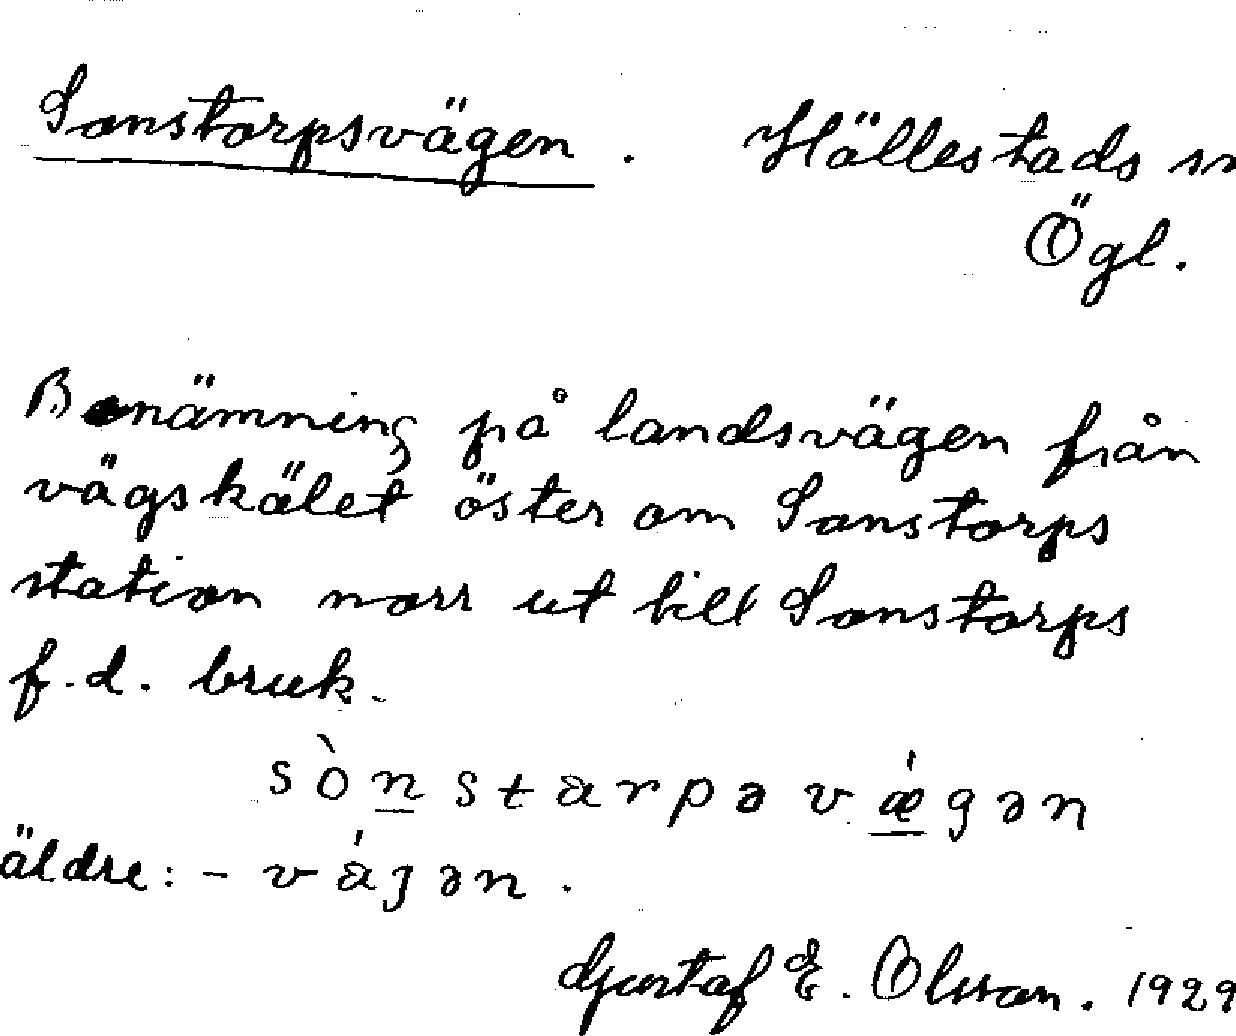 Sonstorpsvägen. Hällestads sn
Ögl.
Benämning på landsvägen från
vägskälet öster om Sonstorps
station norr ut till Sonstorps
f.d. bruk.
sònstarpəvǽgən
äldre: - vágən.
Gustaf E. Olsson. 1929